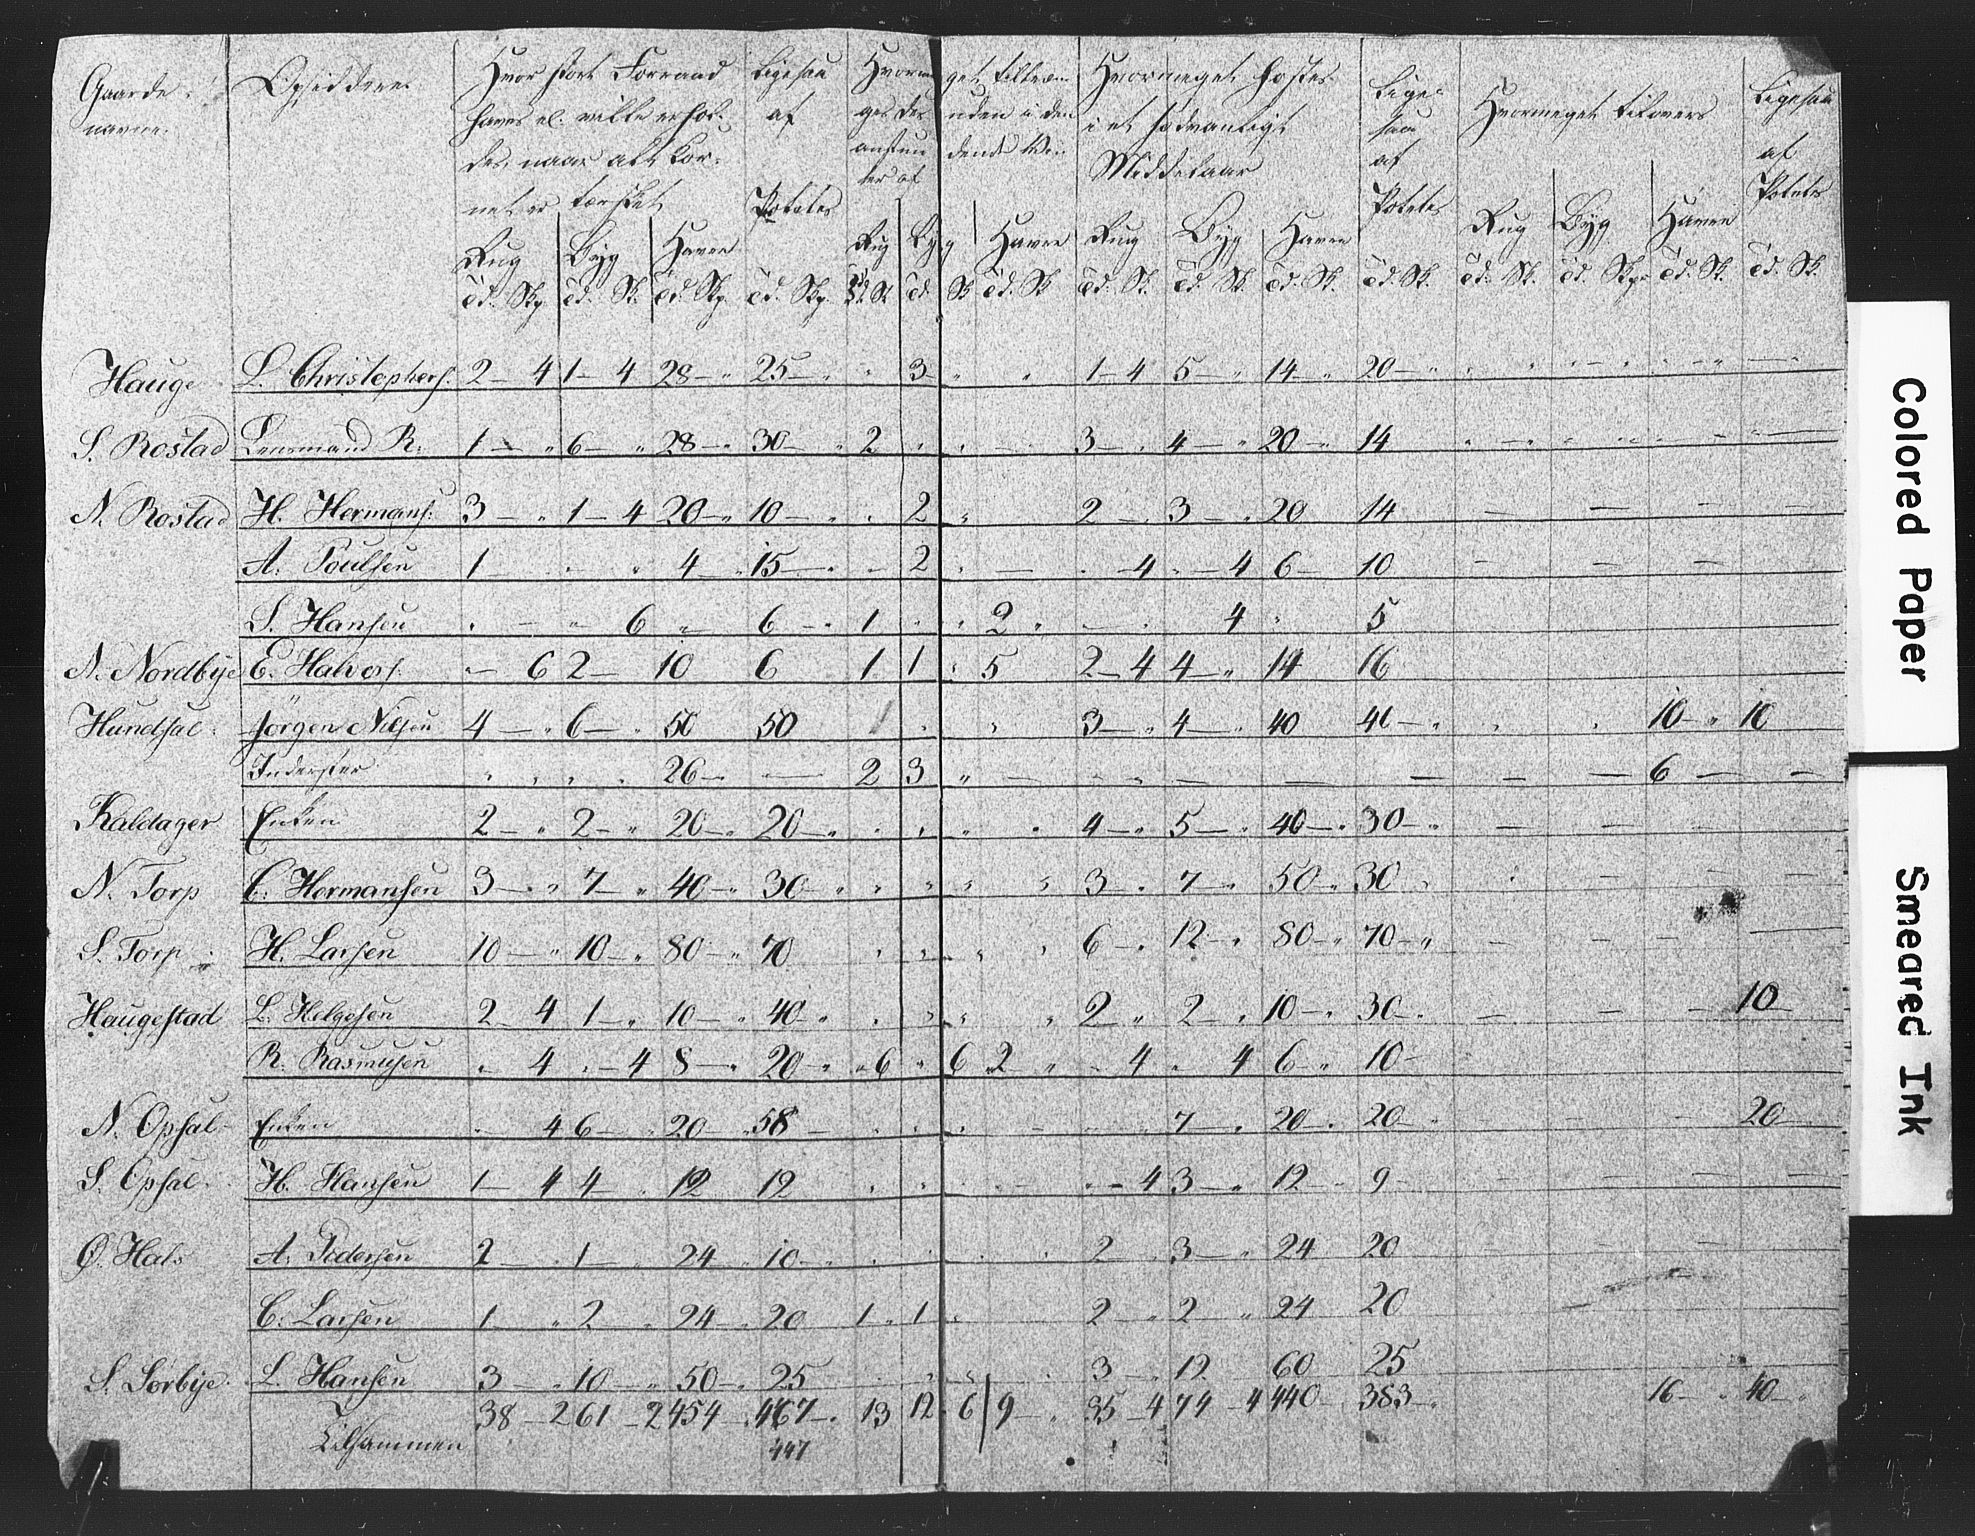 Gaarde-
navne.
Opsiddere
Hvor stort Forraad
haves el. ville erhol-
des, naar alt Kor-
net er tærsket
Rug Byg Havre
Td. Skp. Td. Sk. Td. Skp.
Ligesaa
af
Potetes
Td. Skp.
Hvormeget tiltræn-
ges
Rug Byg Havre
Hvormeget høstes
i et sædvanligt
Middelaar
Rug Byg Havre
Td. Sk. Td. Sk. Td. Sk.
Lige-
saa
af
Potetes
Td. Sk.
Hvormeget tilovers
Rug Byg Havre
Td. Sk. Td. Skp. Td. Sk.
Ligesaa
af
Potetes
Td. Sk.
Hauge L. Christophers. 2 – 4 1 – 4 28 – " 25 – " " 3 " " 1 – 4 5 – " 14 – " 20 – "
S. Rostad Lensmand R. 1 – " 6 – " 28 – " 30 – " 2 3 – " 4 – " 20 – " 14
N. Rostad H. Hermans. 3 – " 1 – 4 20 – " 10 – " " 2 " 2 – 3 – " 20 14
A. Poulsen 1 – 4 – " 15 – " – 2 – 4 " – 4 6 – 10
S. Hansen 6 " 6 – " 1 2 " 4 " 5
N. Nordbye E. Halvors. – 6 2 – 10 6 1 1 5 2 – 4 4 – " 14 16
Hundsal Jørgen Nilsen 4 – " 6 – " 50 50 3 – " 4 – " 40 40 – " 10 – " 10
Inderster 26 – – 2 3 " – – – – – – – 6 – –
Kaldager Enken 2 – " 2 – " 20 – " 20 – " 4 – " 5 – " 40 – " 30 – " – – –
N. Torp C. Hermansen 3 – " 7 – " 40 – " 30 – " 3 – " 7 – " 50 – " 30 – – –
S. Torp H. Larsen 10 – " 10 – " 80 – " 70 6 – " 12 – " 80 – " 70 – " – – – –
Haugestad L. Helgesen 2 – 4 1 – " 10 – " 40 – " 2 " 2 – " 10 – " 30 – " – – – 10
R. Rasmusen " 4 " – 4 8 – " 20 – " " 6 " 6 2 " – 4 " 4 6 – " 10 –
N. Opsal Enken 4 6 – 20 58 – 7 – " 20 – " 20 – 20 –
S. Opsal H. Hansen 1 – 4 4 – 12 12 – 4 3 – " 12 – 9 –
Ø. Hals A. Pedersen 2 – " 1 – 24 – " 10 – " 2 3 – " 24 20
C. Larsen 1 – " 2 – " 24 – " 20 1 " 1 " 2 – " 2 " 24 20
S. Sørbye L. Hansen 3 – " 10 – " 50 – " 25 3 12 60 25
Tilsammen 38 – 2 61 – 2 454 – 467 – " 13 12 6 9 – " 35 – 4 74 – 4 440 – 383 – " 16 – " 40 – "
447
Colored Paper
Smeared Ink